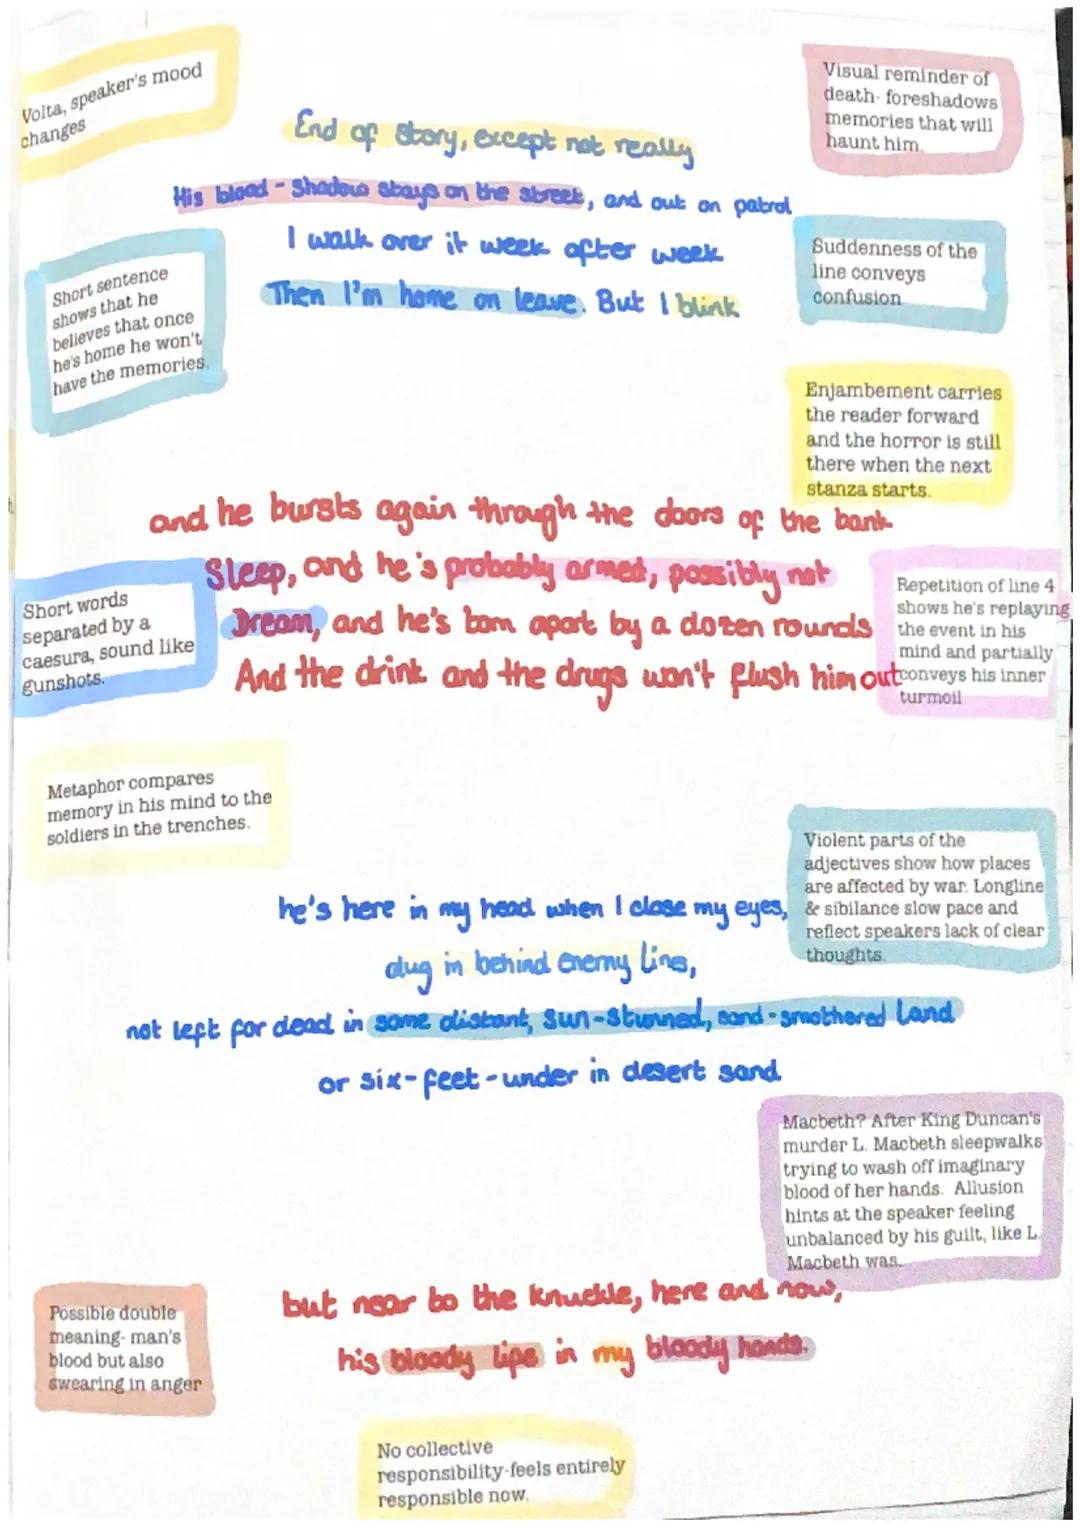 Volta, speaker's mood
changes
Visual reminder of
death- foreshadows
memories that will
haunt him.
End of story, except not really
His blood-shadow stays on the street, and out on patrol
I walk over it week after week
Then I'm home on leave. But I blink
Short sentence
shows that he
believes that once
he's home he won't
have the memories.
Suddenness of the
line conveys
confusion
Enjambement carries
the reader forward
and the horror is still
there when the next
stanza starts.
and he bursts again through the doors of the bank
Sleep, and he's probably armed, possibly not
Dream, and he's torn apart by a dozen rounds
And the drink and the drugs won't flush him out
Short words
separated by a
caesura, sound like
gunshots.
Repetition of line 4
shows he's replaying
the event in his
mind and partially
conveys his inner
turmoil
Metaphor compares
memory in his mind to the
soldiers in the trenches.
Violent parts of the
adjectives show how places
are affected by war. Longline
& sibilance slow pace and
reflect speakers lack of clear
thoughts.
he's here in my head when I close my eyes,
dug in behind enemy line,
not left for dead in some distant, sun-stunned, sand-smothered land
or six-feet-under in desert sand
Macbeth? After King Duncan's
murder L. Macbeth sleepwalks
trying to wash off imaginary
blood of her hands. Allusion
hints at the speaker feeling
unbalanced by his guilt, like L.
Macbeth was.
but near to the knuckle, here and now,
his bloody lips in my bloody hands.
Possible double
meaning- man's
blood but also
swearing in anger
No collective
responsibility-feels entirely
responsible now.